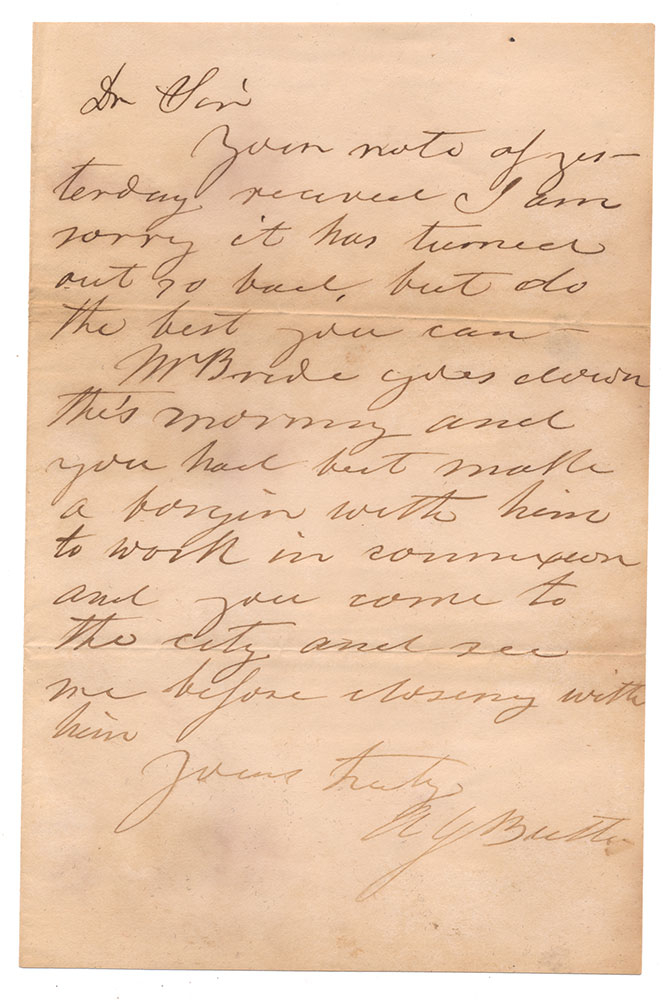 Dr Sir
Your note of yes-
terday recieved I am
sorry it has turned
out so bad, but do
the best you can -
McBride goes down
this morning and
you had best make
a borgin with him
to work in connexion
and you come to
the city and see
me before closeing with
him
Yours truly
Butler